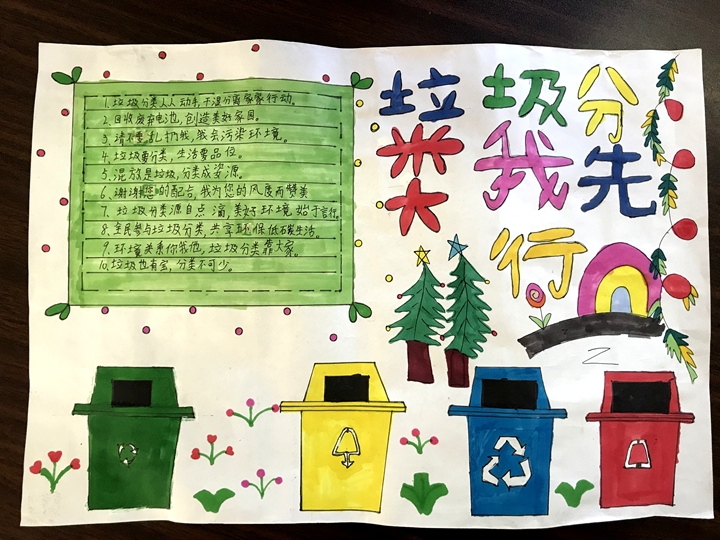 垃圾分类我先行
1. 垃圾分类人人动手,干湿分离家家行动。
2. 回收废弃电池,创造美好家园。
3. 请不要乱扔我,我会污染环境。
4. 垃圾要分类,生活要品位。
5. 混放是垃圾,分类成资源。
6. 谢谢您的配合,我为您的风度而赞美
7. 垃圾分类源自点滴,美好环境始于言行。
8. 全民参与垃圾分类,共享环保低碳生活。
9. 环境关系你我他,垃圾分类靠大家。
10. 垃圾也有宝,分类不可少。